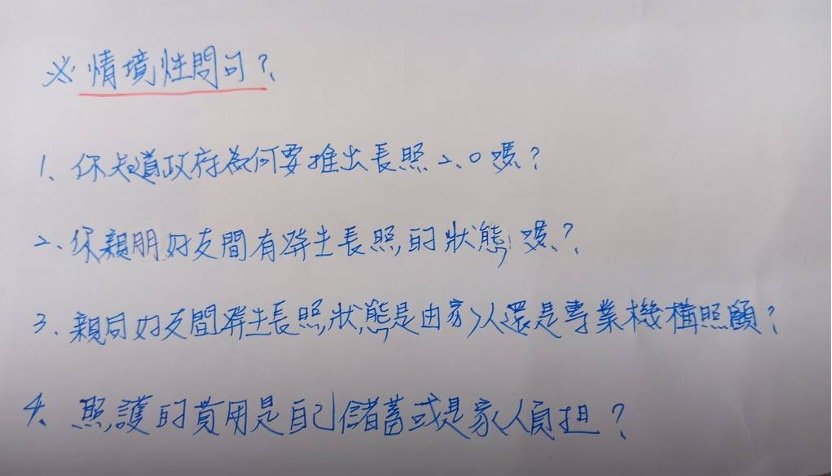 ※情境性問句?
1、你知道政府為何要推出長照2.0嗎?
2、你親朋好友間有發生長照的狀態嗎?
3、親同好友間發生長照狀態是由家人還是專業機構照顧?
4、照護的費用是自己儲蓄或是家人負担?